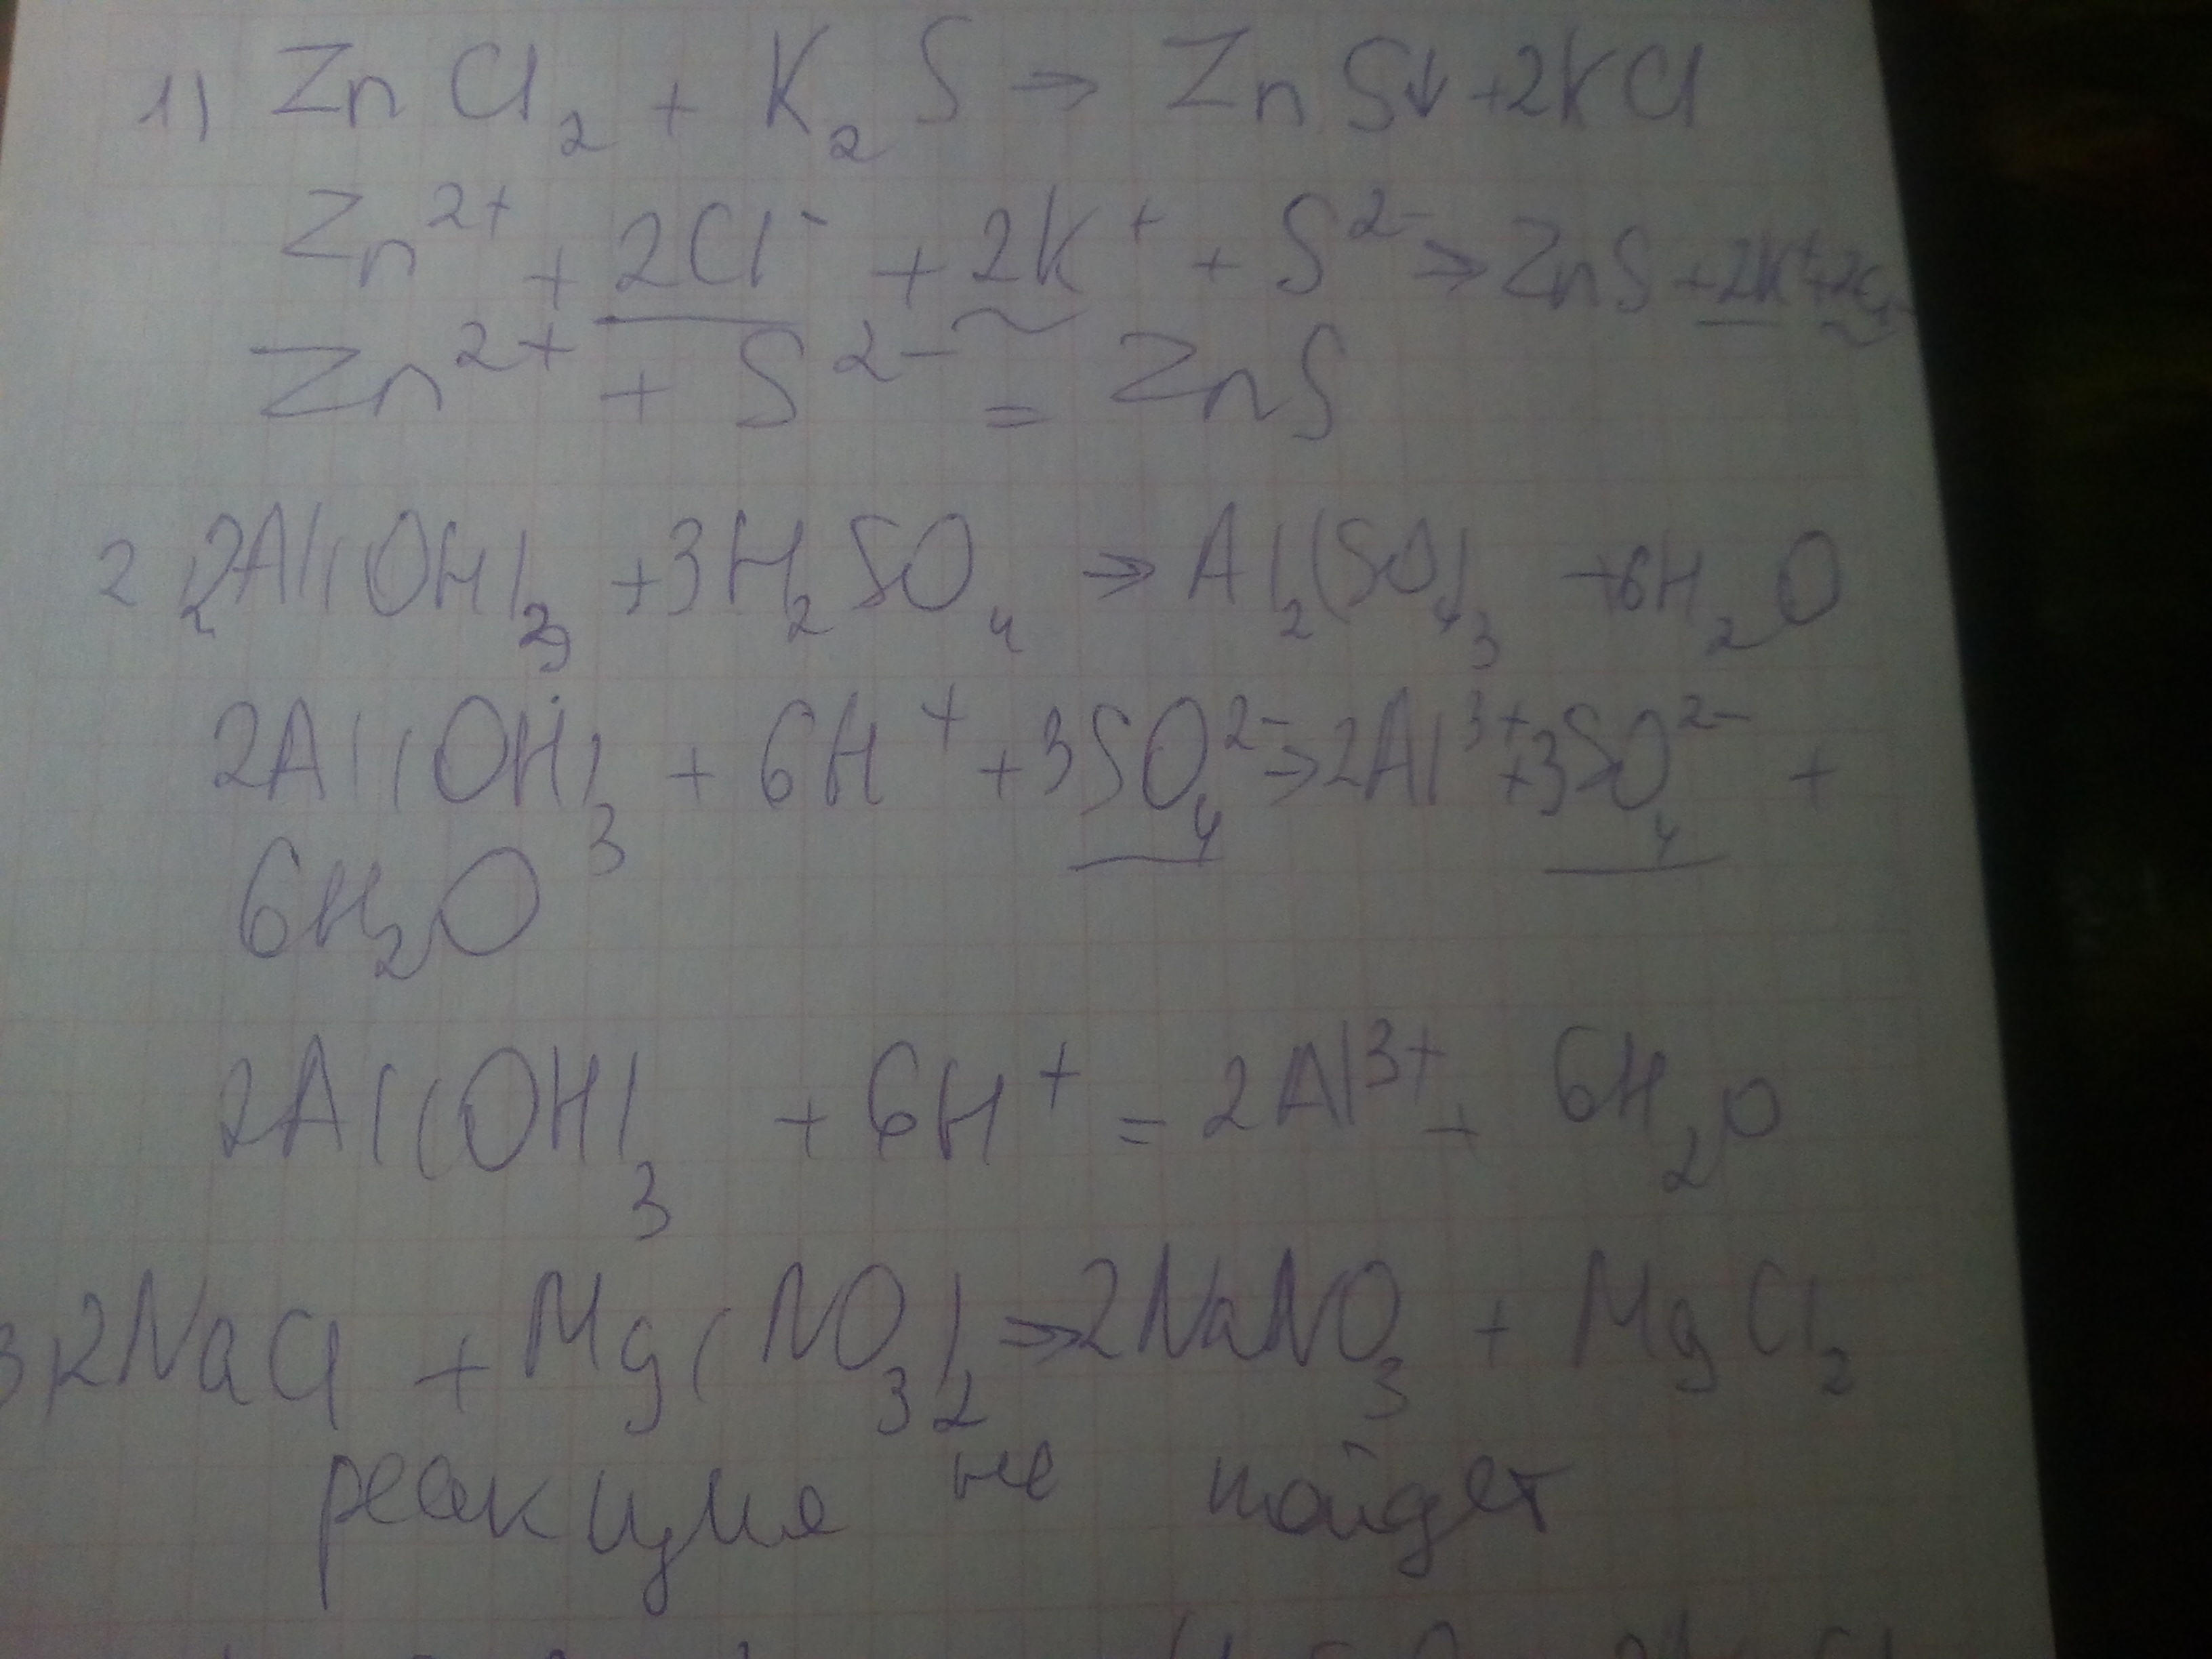 1) ZnCl₂ + K₂S → ZnS↓ + 2KCl
Zn²⁺ + 2Cl⁻ + 2K⁺ + S²⁻ → ZnS + 2K⁺ + 2Cl⁻
Zn²⁺ + S²⁻ = ZnS
2 2Al(OH)₃ + 3H₂SO₄ → Al₂(SO₄)₃ + 6H₂O
2Al(OH)₃ + 6H⁺ + 3SO₄²⁻ → 2Al³⁺ + 3SO₄²⁻ +
6H₂O
2Al(OH)₃ + 6H⁺ = 2Al³⁺ + 6H₂O
3) 2NaCl + Mg(NO₃)₂ → 2NaNO₃ + MgCl₂
реакция не пойдет